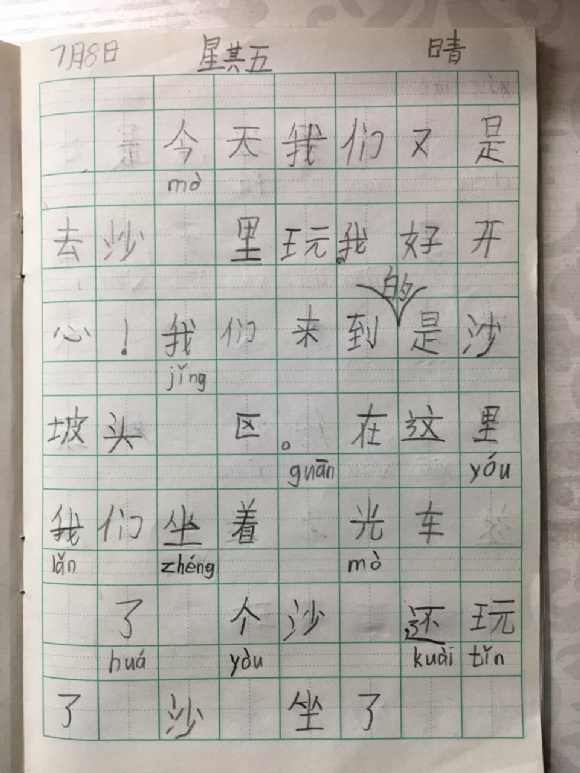 7月8日 星其五 晴
今天我们又是
mò
去沙 里玩。我好开
的
心！我们来到是沙
jǐng
坡头 区。在这里
guān yóu
我们坐着 光车
lǎn zhéng mò
了 个沙 还玩
huá yòu kuài tǐn
了 沙 坐了